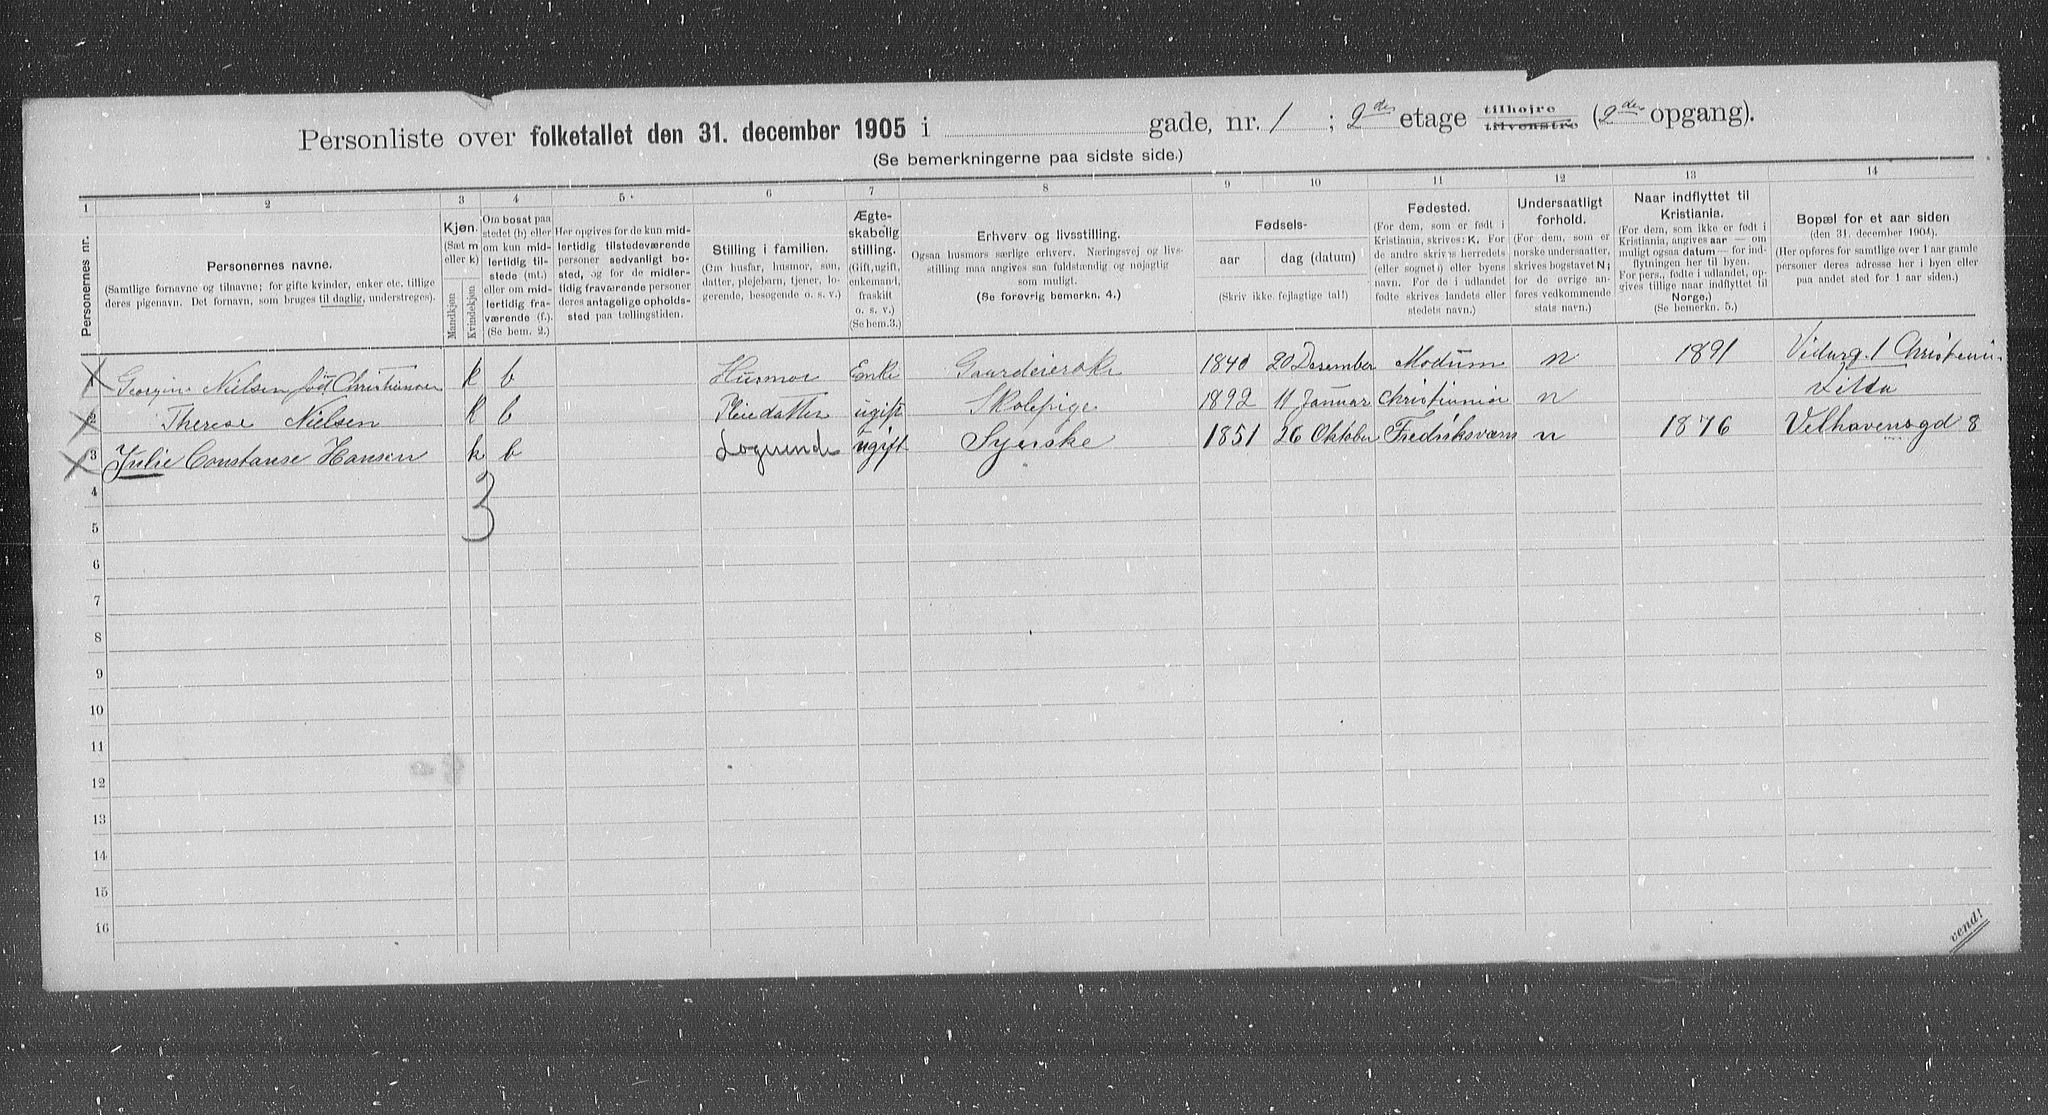 Personliste over folketallet den 31. december 1905 i gade, nr. 1 ; 2den etage tilhøjre tilvenstre (2den opgang).
(Se bemerkningerne paa sidste side.)
1 2 3 4 5 6 7 8 9 10 11 12 13 14
Personernes nr.
Personernes navne.
(Samtlige fornavne og tilnavne; for gifte kvinder, enker etc. tillige
deres pigenavn. Det fornavn, som bruges til daglig, understreges).
Kjøn.
(Sæt m
eller k)
Mandkjøn
Kvindekjøn
Om bosat paa
stedet (b) eller
om kun mid-
lertidig til-
stede (mt.)
eller om mid-
lertidig fra-
værende (f.).
(Se bem. 2.)
Her opgives for de kun mid-
lertidig tilstedeværende
personer sedvanligt bo-
sted, og for de midler-
tidig fraværende personer
deres antagelige opholds-
sted paa tællingstiden.
Stilling i familien.
(Om husfar, husmor, søn,
datter, plejebarn, tjener, lo-
gerende, besøgende o. s. v.)
Ægte-
skabelig
stilling.
(Gift, ugift,
enkemand,
fraskilt
o. s. v.)
(Se bem.3.)
Erhverv og livsstilling.
Ogsaa husmors særlige erhverv. Næringsvej og livs-
stilling maa angives saa fuldstændig og nøjagtig
som muligt.
(Se forøvrig bemerkn. 4.)
Fødsels-
aar
dag (datum)
(Skriv ikke fejlagtige tal!)
Fødested.
(For dem, som er født i
Kristiania, skrives: K. For
de andre skrives herredets
(eller sognets) eller byens
navn. For de i udlandet
fødte skrives landets eller
stedets navn.)
Undersaatligt
forhold.
(For dem, som er
norske undersaatter,
skrives bogstavet N;
for de øvrige an-
føres vedkommende
stats navn.)
Naar indflyttet til
Kristiania.
(For dem, som ikke er født i
Kristiania, angives aar — om
muligt ogsaa datum — for ind-
flytningen her til byen.
For pers., fødte i udlandet, op-
gives tillige naar indflyttet til
Norge.)
(Se bemerkn. 5.)
Bopæl for et aar siden
(den 31. december 1904).
(Her opføres for samtlige over 1 aar gamle
personer deres adresse her i byen eller
paa andet sted for 1 aar siden.)
1 Georgine Nielsen født Christiansen k b Husmor Enke Gaardeierske 1840 20 Desember Modum n 1891 Vidarg. 1 Christiania
2 Therese Nielsen k b Pleiedatter ugift Skolepige 1892 11 Januar Christiania n
3 Julie Constanse Hansen k b Logerende ugift Syerske 1851 26 Oktober Fredriksværn n 1876 Velhavensgd 8
3
4
5
6
7
8
9
10
11
12
13
14
15
16
vend!